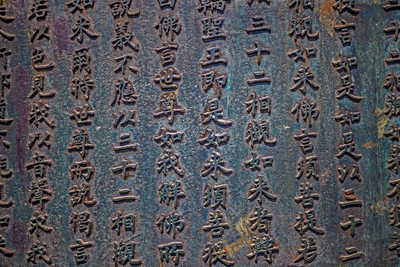 言如是如是以三十二
相觀如來佛言須菩提若
以三十二相觀如來者轉
輪聖王即是如來須菩提
白佛言世尊如我解佛所
說義不應以三十二相觀
如來爾時世尊而說偈言
若以色見我以音聲求我